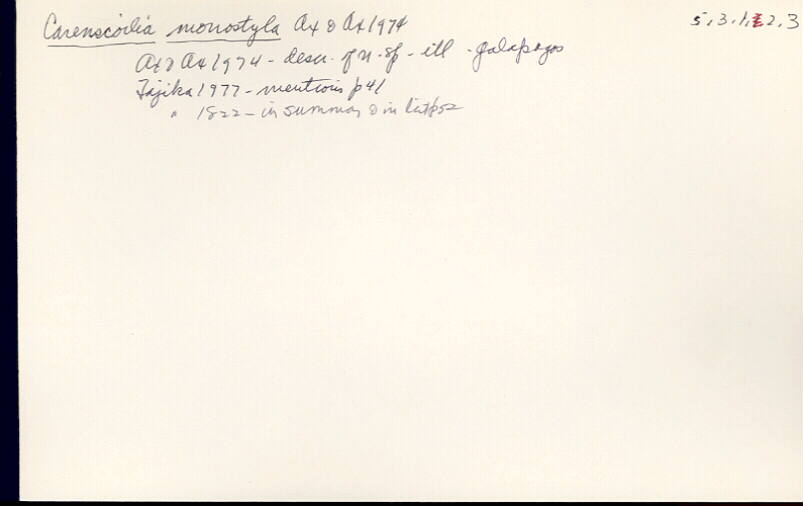 Carenscoilia monostyla Ax & Ax 1974 5.3.1.2.3
Ax & Ax 1974 - descr. of n. sp - ill - Galapagos
Tajika 1977 - mentions p41
" 1822 - in summary & in list p52